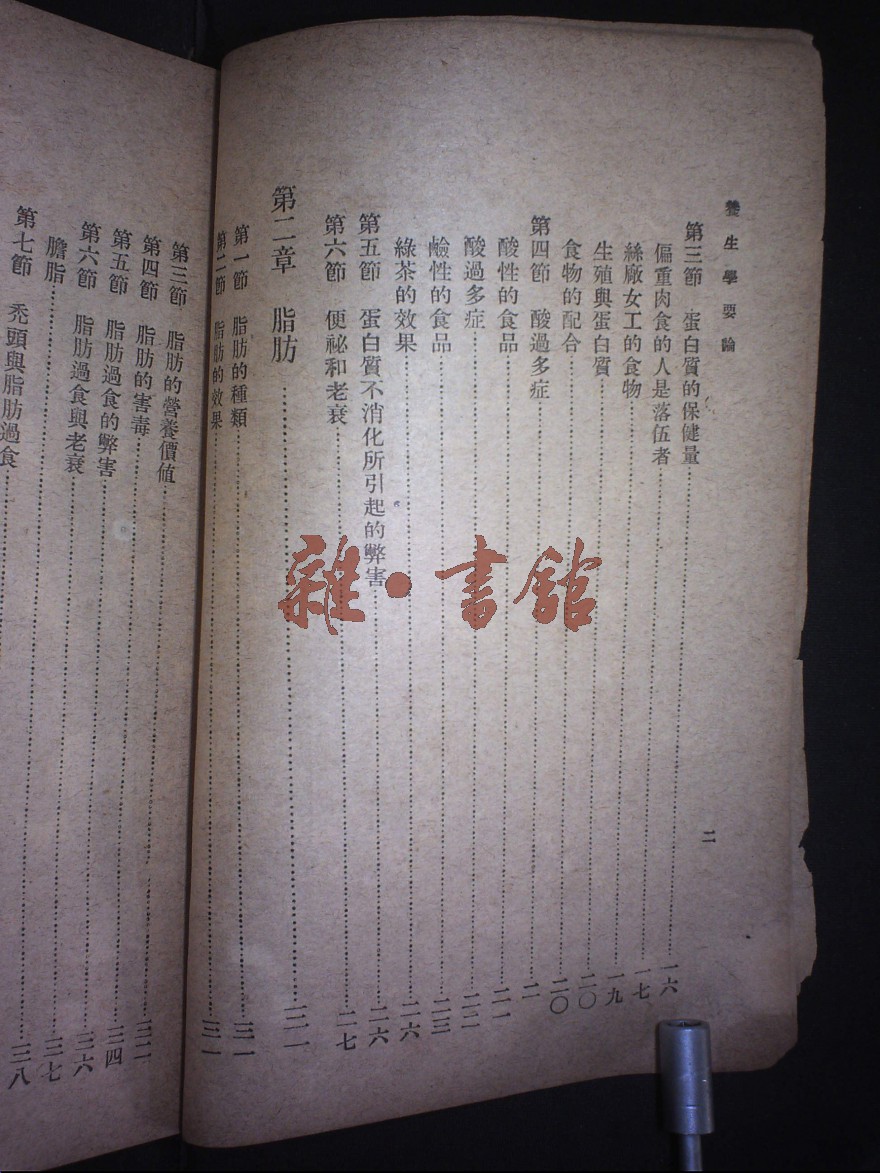 養生學要論
二
第三節 蛋白質的保健量……一六
偏重肉食的人是落伍者……一七
絲廠女工的食物……一九
生殖與蛋白質……二〇
食物的配合……二〇
第四節 酸過多症……二
酸性的食品……二一
酸過多症……二二
鹼性的食品……二三
綠茶的效果……二六
第五節 蛋白質不消化所引起的弊害……二六
第六節 便祕和老衰……二七
第二章 脂肪……三一
第一節 脂肪的種類……三一
第二節 脂肪的效果……三一
第三節 脂肪的營養價值……三二
第四節 脂肪的害毒……三四
第五節 脂肪過食的弊害……三六
第六節 脂肪過食與老衰……三七
膽脂……三八
第七節 禿頭與脂肪過食
雜·書館